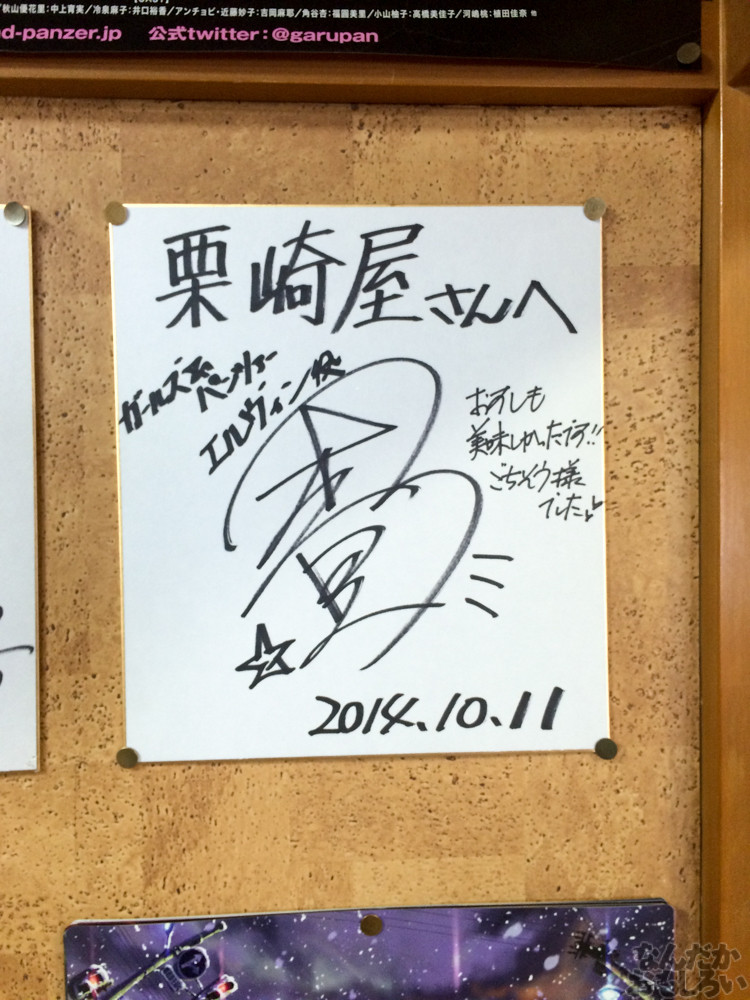 ／秋山優花里：中上育実／冷泉麻子：井口裕香／アンチョビ・近藤妙子：吉岡麻耶／角谷杏：福圓美里／小山柚子：高橋美佳子／河嶋桃：植田佳奈 他
d-panzer.jp 公式twitter：@garupan
栗崎屋さんへ
ガールズ&
パンツァー
エルヴィン役
おすしも
美味しかったです!!
ごちそう様
でした♥
☆
2014.10.11
なんだか
おもしろい